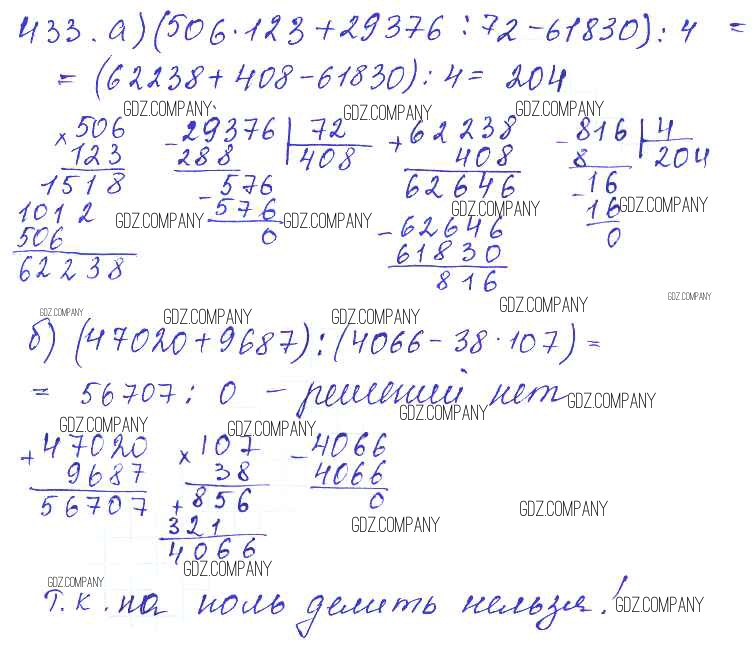 433. а) (506·123+29376:72-61830):4 =
= (62238+408-61830):4= 204
GDZ.COMPANY GDZ.COMPANY GDZ.COMPANY
× 506 - 29376 | 72 + 62238 - 816 | 4
123 288 408 408 8 204
1518 576 62646 - 16
1012 - 576 - 62646 16
506 0 61830 0
62238 816
GDZ.COMPANY GDZ.COMPANY GDZ.COMPANY GDZ.COMPANY
GDZ.COMPANY GDZ.COMPANY GDZ.COMPANY GDZ.COMPANY GDZ.COMPANY
б) (47020+9687):(4066-38·107)=
= 56707:0 - решений нет
GDZ.COMPANY GDZ.COMPANY GDZ.COMPANY GDZ.COMPANY
+ 47020 × 107 - 4066
9687 38 4066
56707 + 856 0
321
4066
GDZ.COMPANY GDZ.COMPANY GDZ.COMPANY
GDZ.COMPANY
Т.к. на ноль делить нельзя!
GDZ.COMPANY